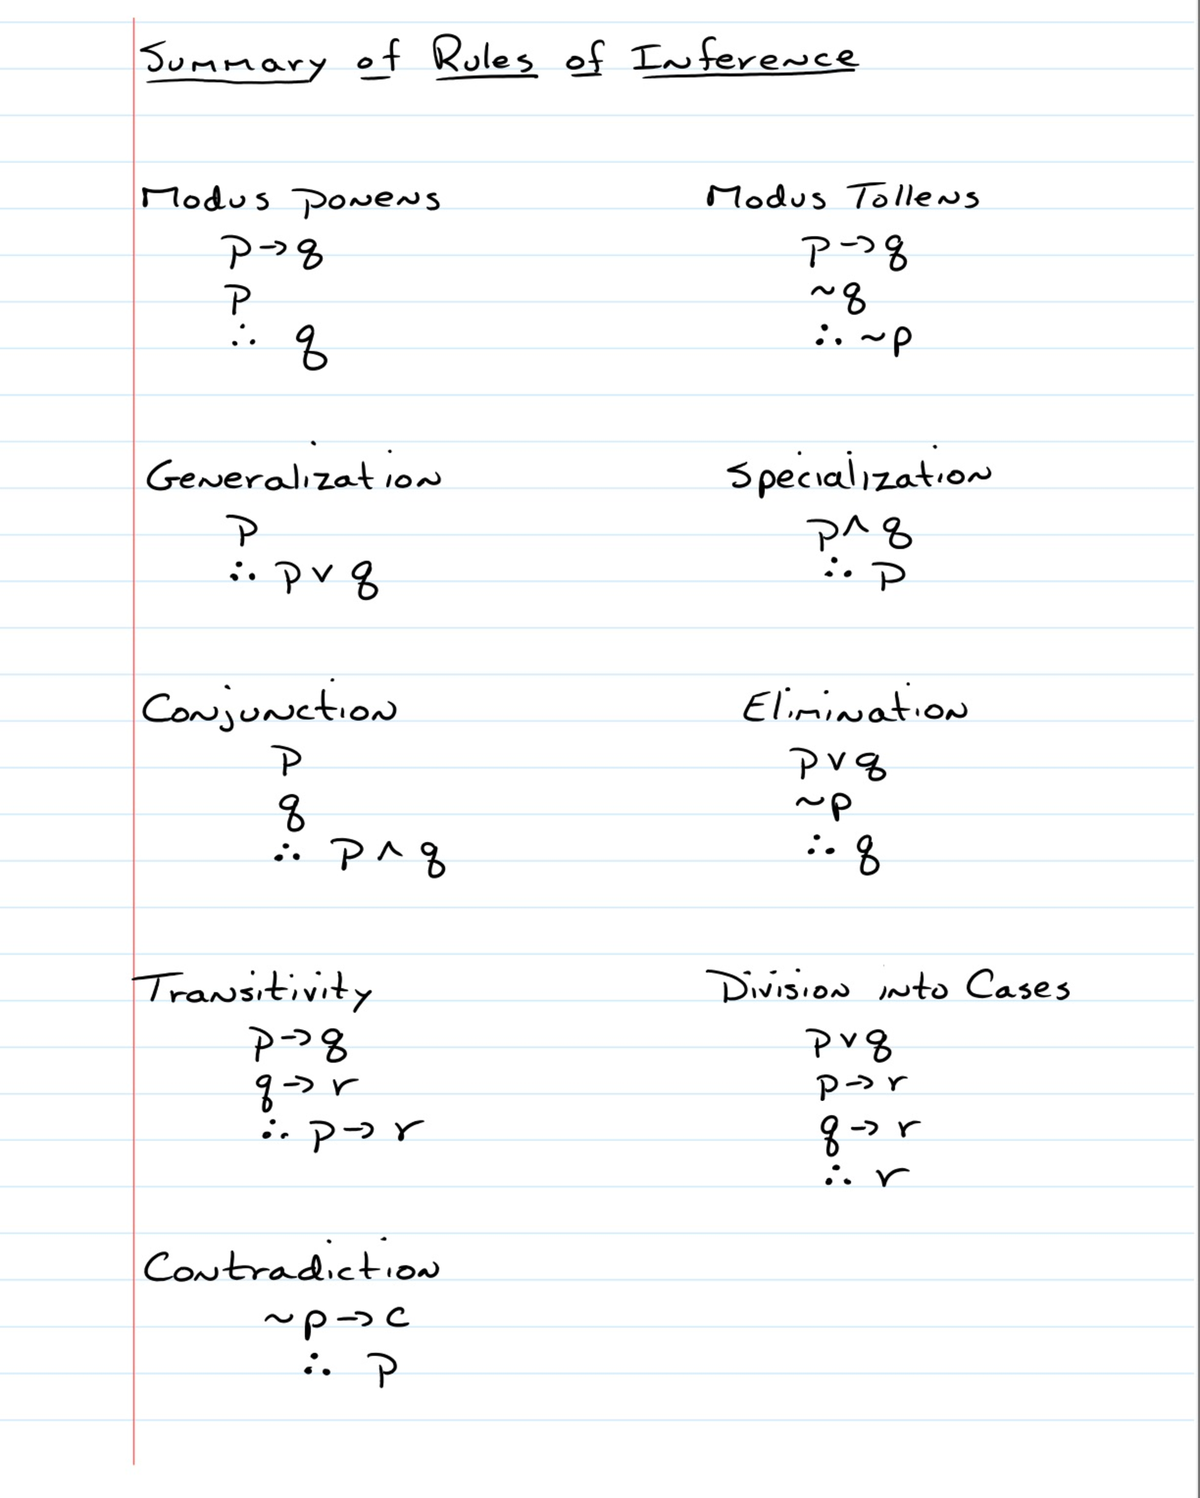 Summary of Rules of Inference
Modus Ponens
p→q
p
∴ q
Modus Tollens
p→q
~q
∴ ~p
Generalization
p
∴ p∨q
Specialization
p∧q
∴ p
Conjunction
p
q
∴ p∧q
Elimination
p∨q
~p
∴ q
Transitivity
p→q
q→r
∴ p→r
Division into Cases
p∨q
p→r
q→r
∴ r
Contradiction
~p→c
∴ p